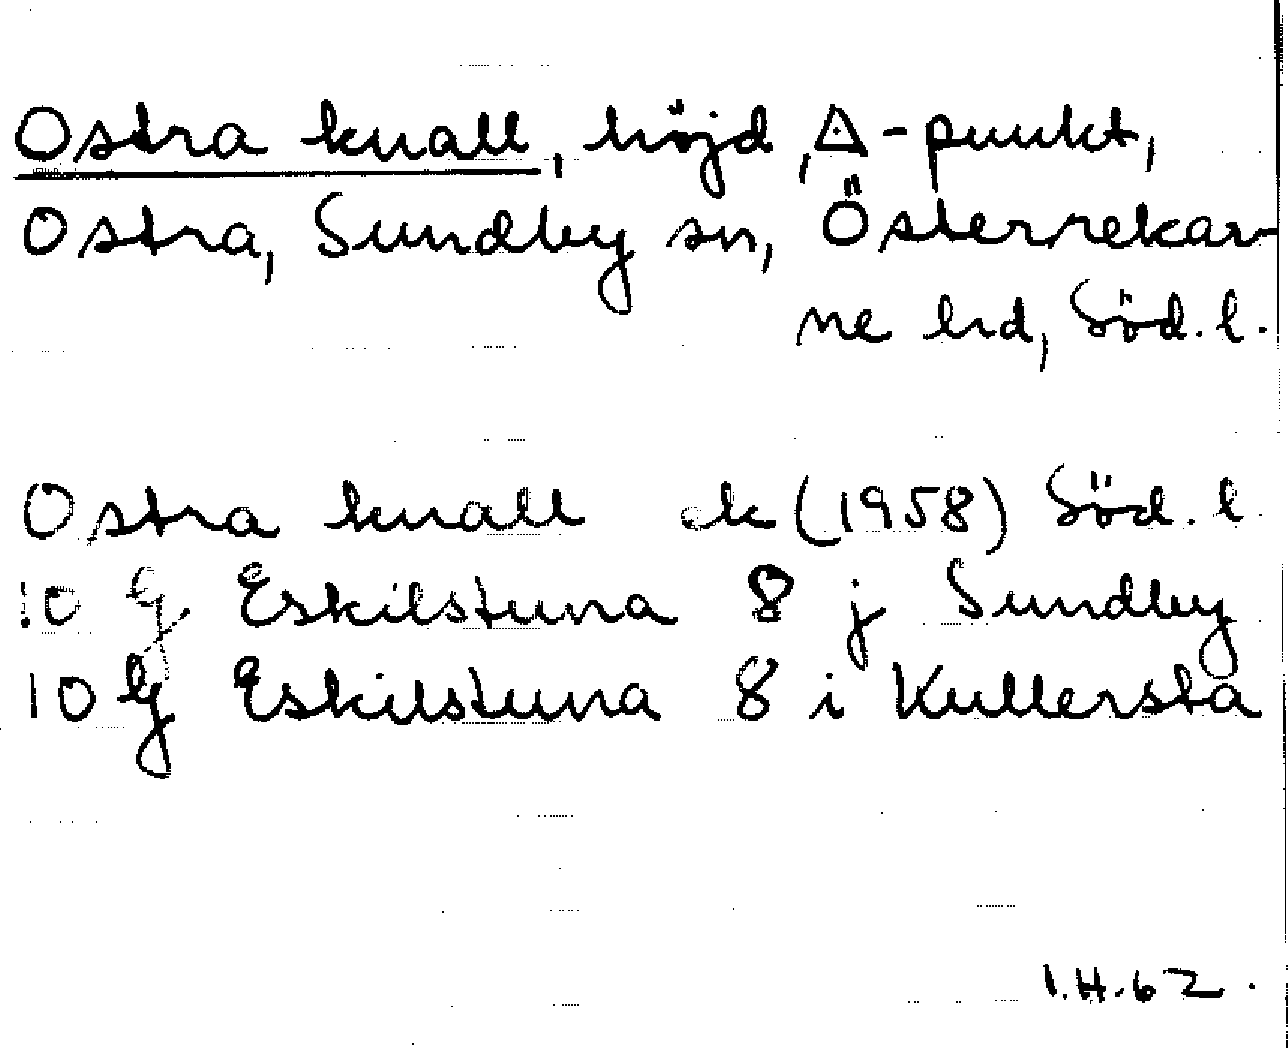 Ostra knall, höjd, △-punkt,
Ostra, Sundby sn, Österrekar-
ne hd, Söd. l.
Ostra knall ek (1958) Söd. l.
10 G Eskilstuna 8 j Sundby
10 G Eskilstuna 8 i Kullersta
I.H.62.